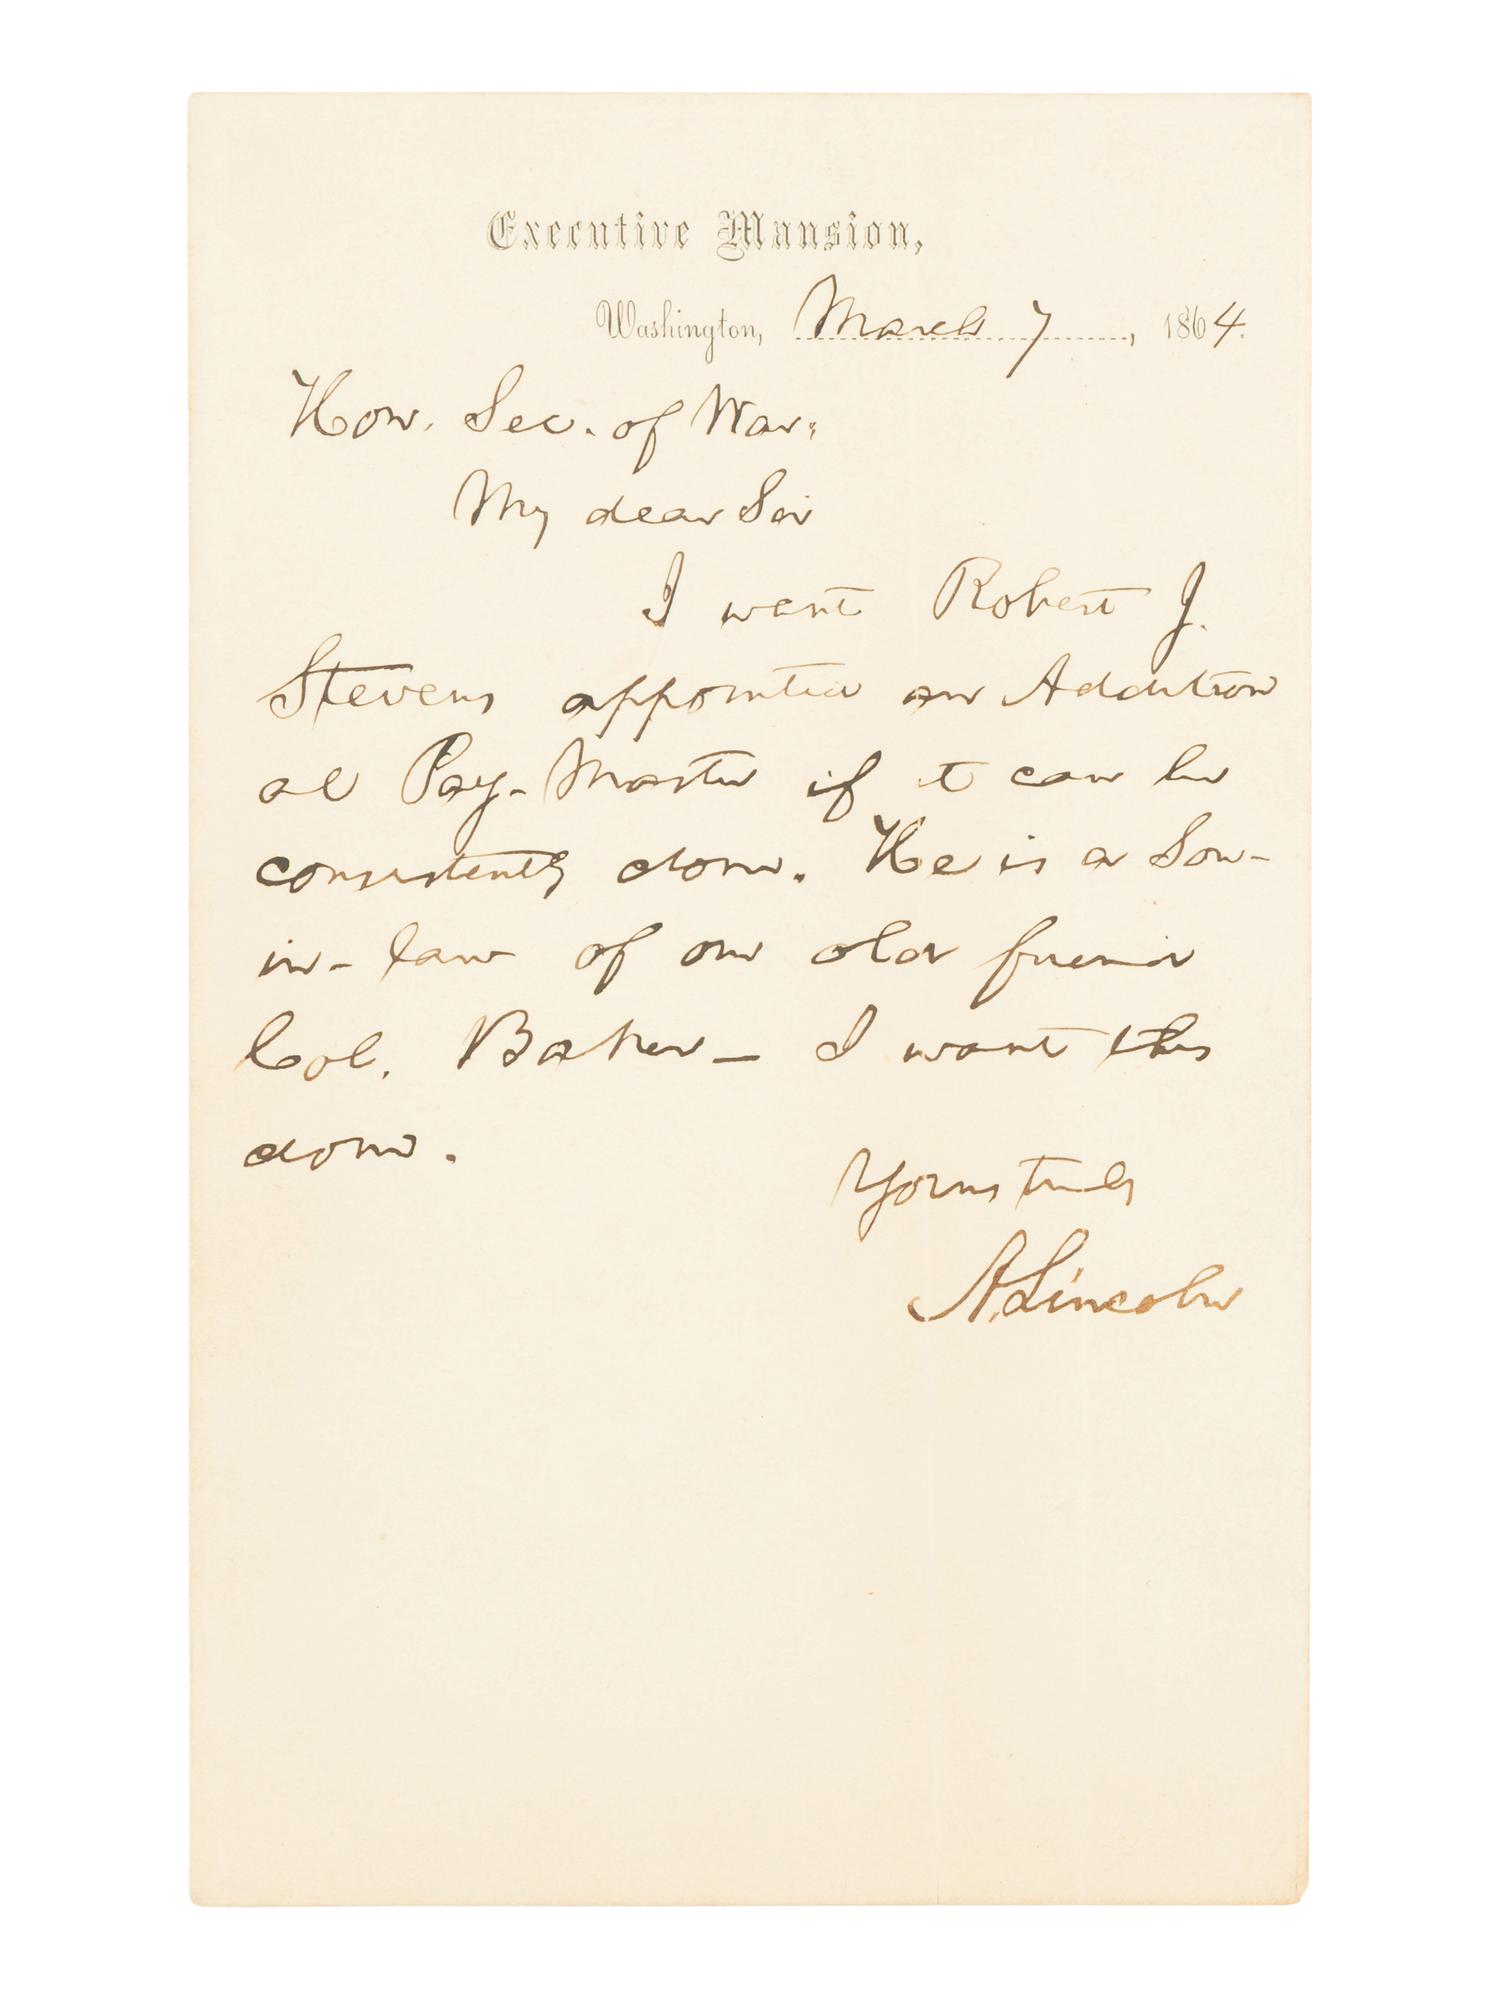 Executive Mansion,
Washington, March 7, 1864.
Hon. Sec. of War:
My dear Sir
I want Robert J.
Stevens appointed an Addition
al Pay-Master if it can be
consistently done. He is a Son-
in-law of our old friend
Col. Baker— I want this
done.
Yours truly
A. Lincoln